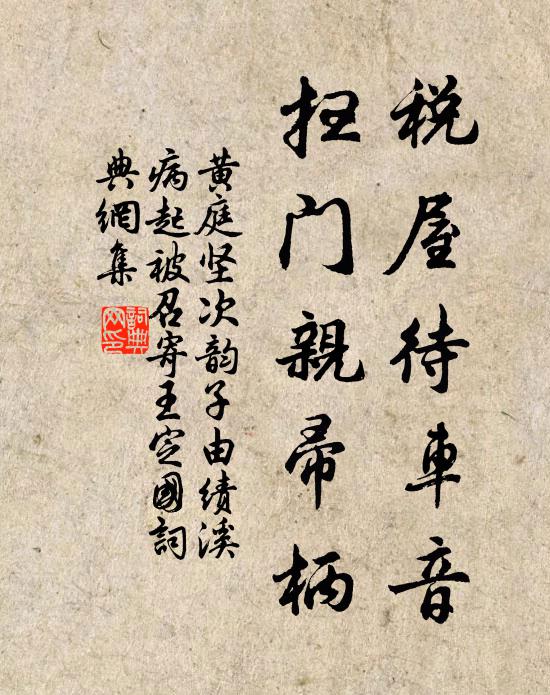 税屋待車音
扫门親帚柄
黄庭坚次韵子由績溪
病起被召寄王定國詞
典網集
詞典
网印